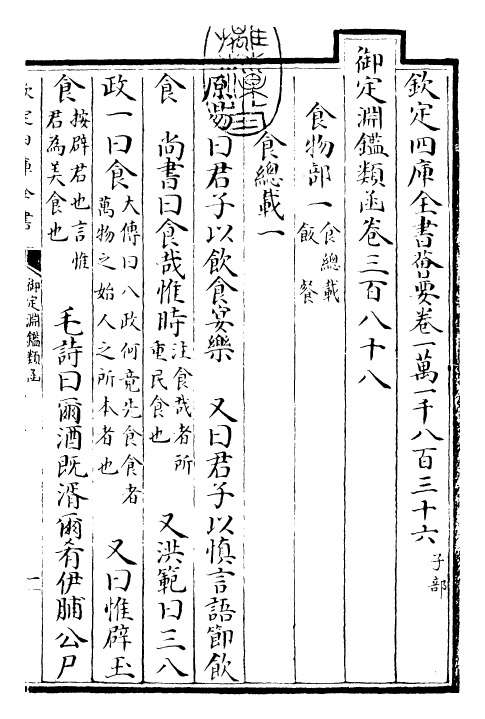 欽定四庫全書薈要卷一萬一千八百三十六 子部
御定淵鑑類函卷三百八十八
食物部一 食總載 飯 餐
食總載一
原易曰君子以飲食宴樂 又曰君子以慎言語節飲
食 尚書曰食哉惟時 注食哉者所重民食也 又洪範曰三八
政一曰食 大傳曰八政何竟先食食者萬物之始人之所本者也 又曰惟辟玉
食 按辟君也言惟君為美食也 毛詩曰爾酒既湑爾肴伊脯公尸
御定淵鑑類函